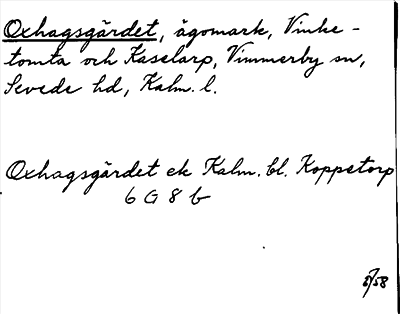 Oxhagsgärdet, ägomark, Vinke-
tomta och Kaselarp, Vimmerby sn,
Sevede hd, Kalm. l.
Oxhagsgärdet ek Kalm. bl. Koppetorp
6 G 8 b
8/58